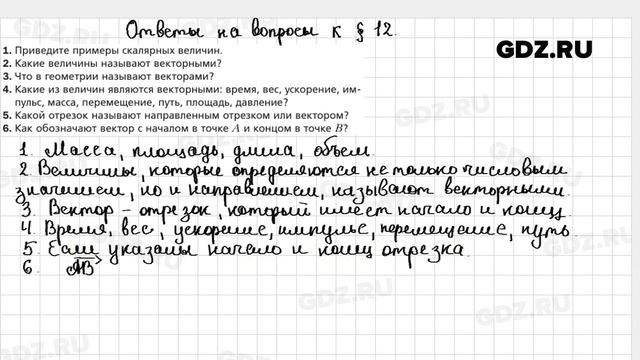 Ответы на вопросы к § 12.
GDZ.RU
1. Приведите примеры скалярных величин.
2. Какие величины называют векторными?
3. Что в геометрии называют векторами?
4. Какие из величин являются векторными: время, вес, ускорение, им-
пульс, масса, перемещение, путь, площадь, давление?
5. Какой отрезок называют направленным отрезком или вектором?
6. Как обозначают вектор с началом в точке A и концом в точке B?
1. Масса, площадь, длина, объем.
2. Величины, которые определяются не только числовым
значением, но и направлением, называют векторными.
3. Вектор – отрезок, который имеет начало и конец.
4. Время, вес, ускорение, импульс, перемещение, путь.
5. Если указаны начало и конец отрезка.
6. AB